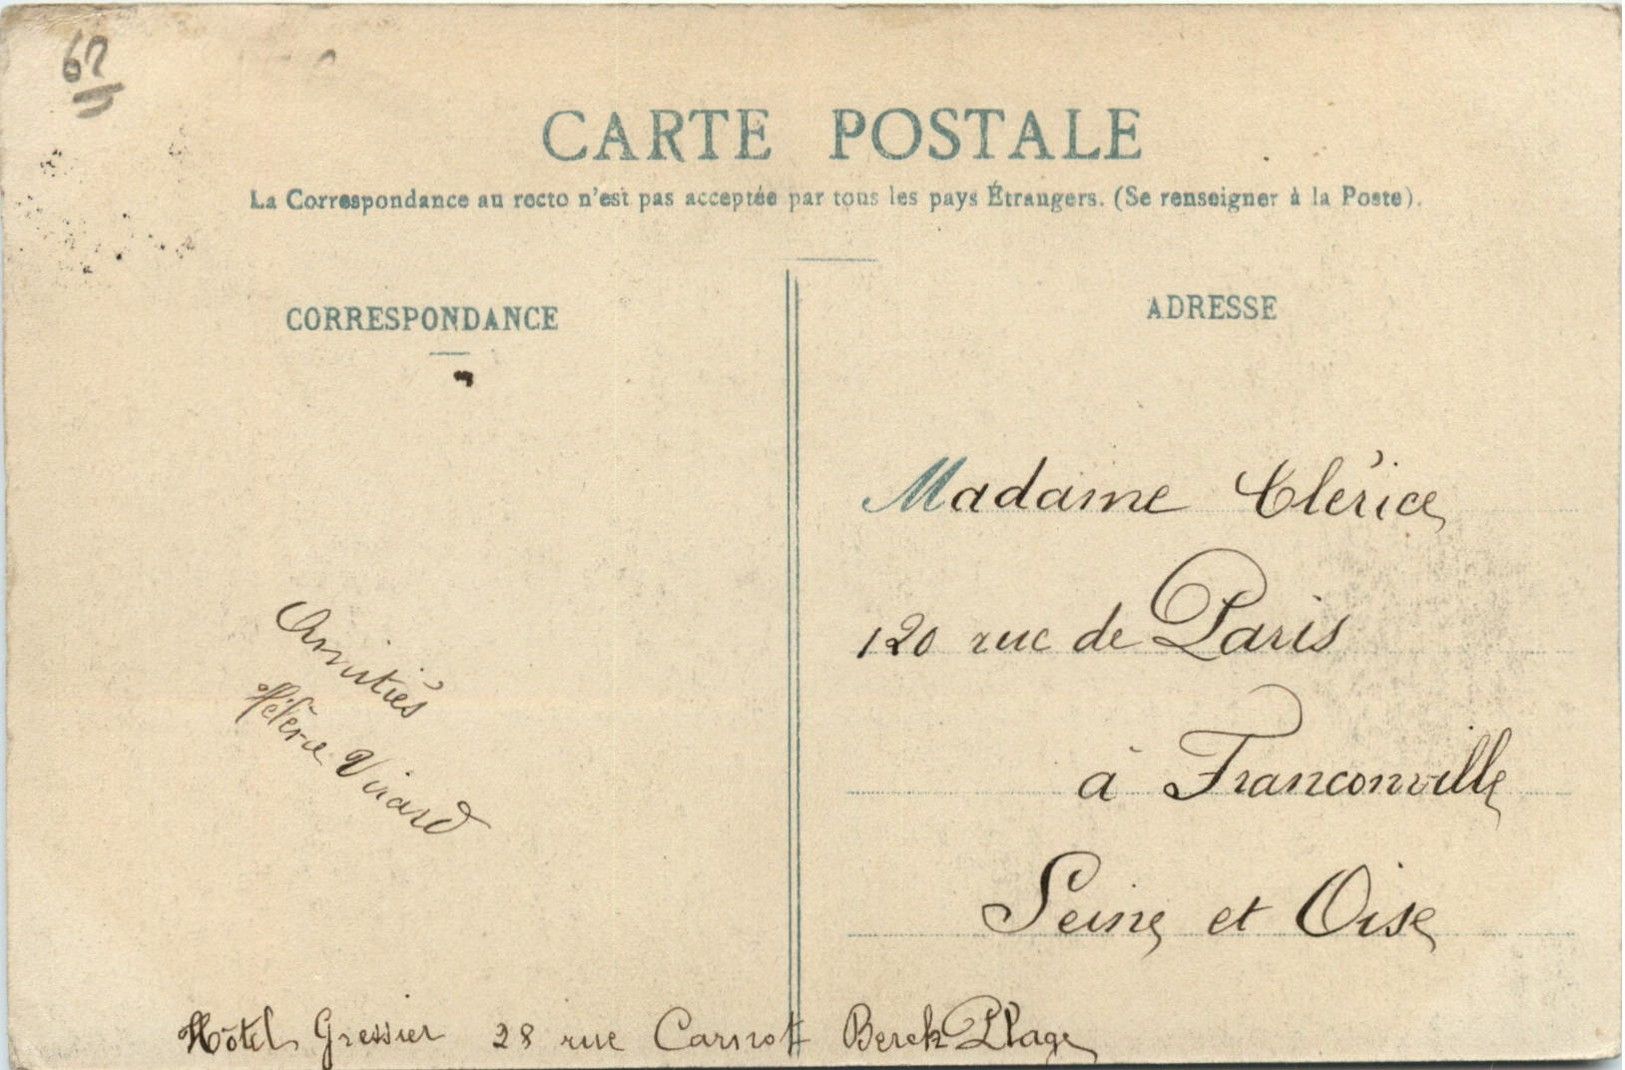 62
CARTE POSTALE
La Correspondance au recto n'est pas acceptée par tous les pays Étrangers. (Se renseigner à la Poste).
CORRESPONDANCE
Amitiés
Hélène Virard
ADRESSE
Madame Clérice
120 rue de Paris
à Franconville
Seine et Oise
Hôtel Gressier 28 rue Carnot Berck Plage